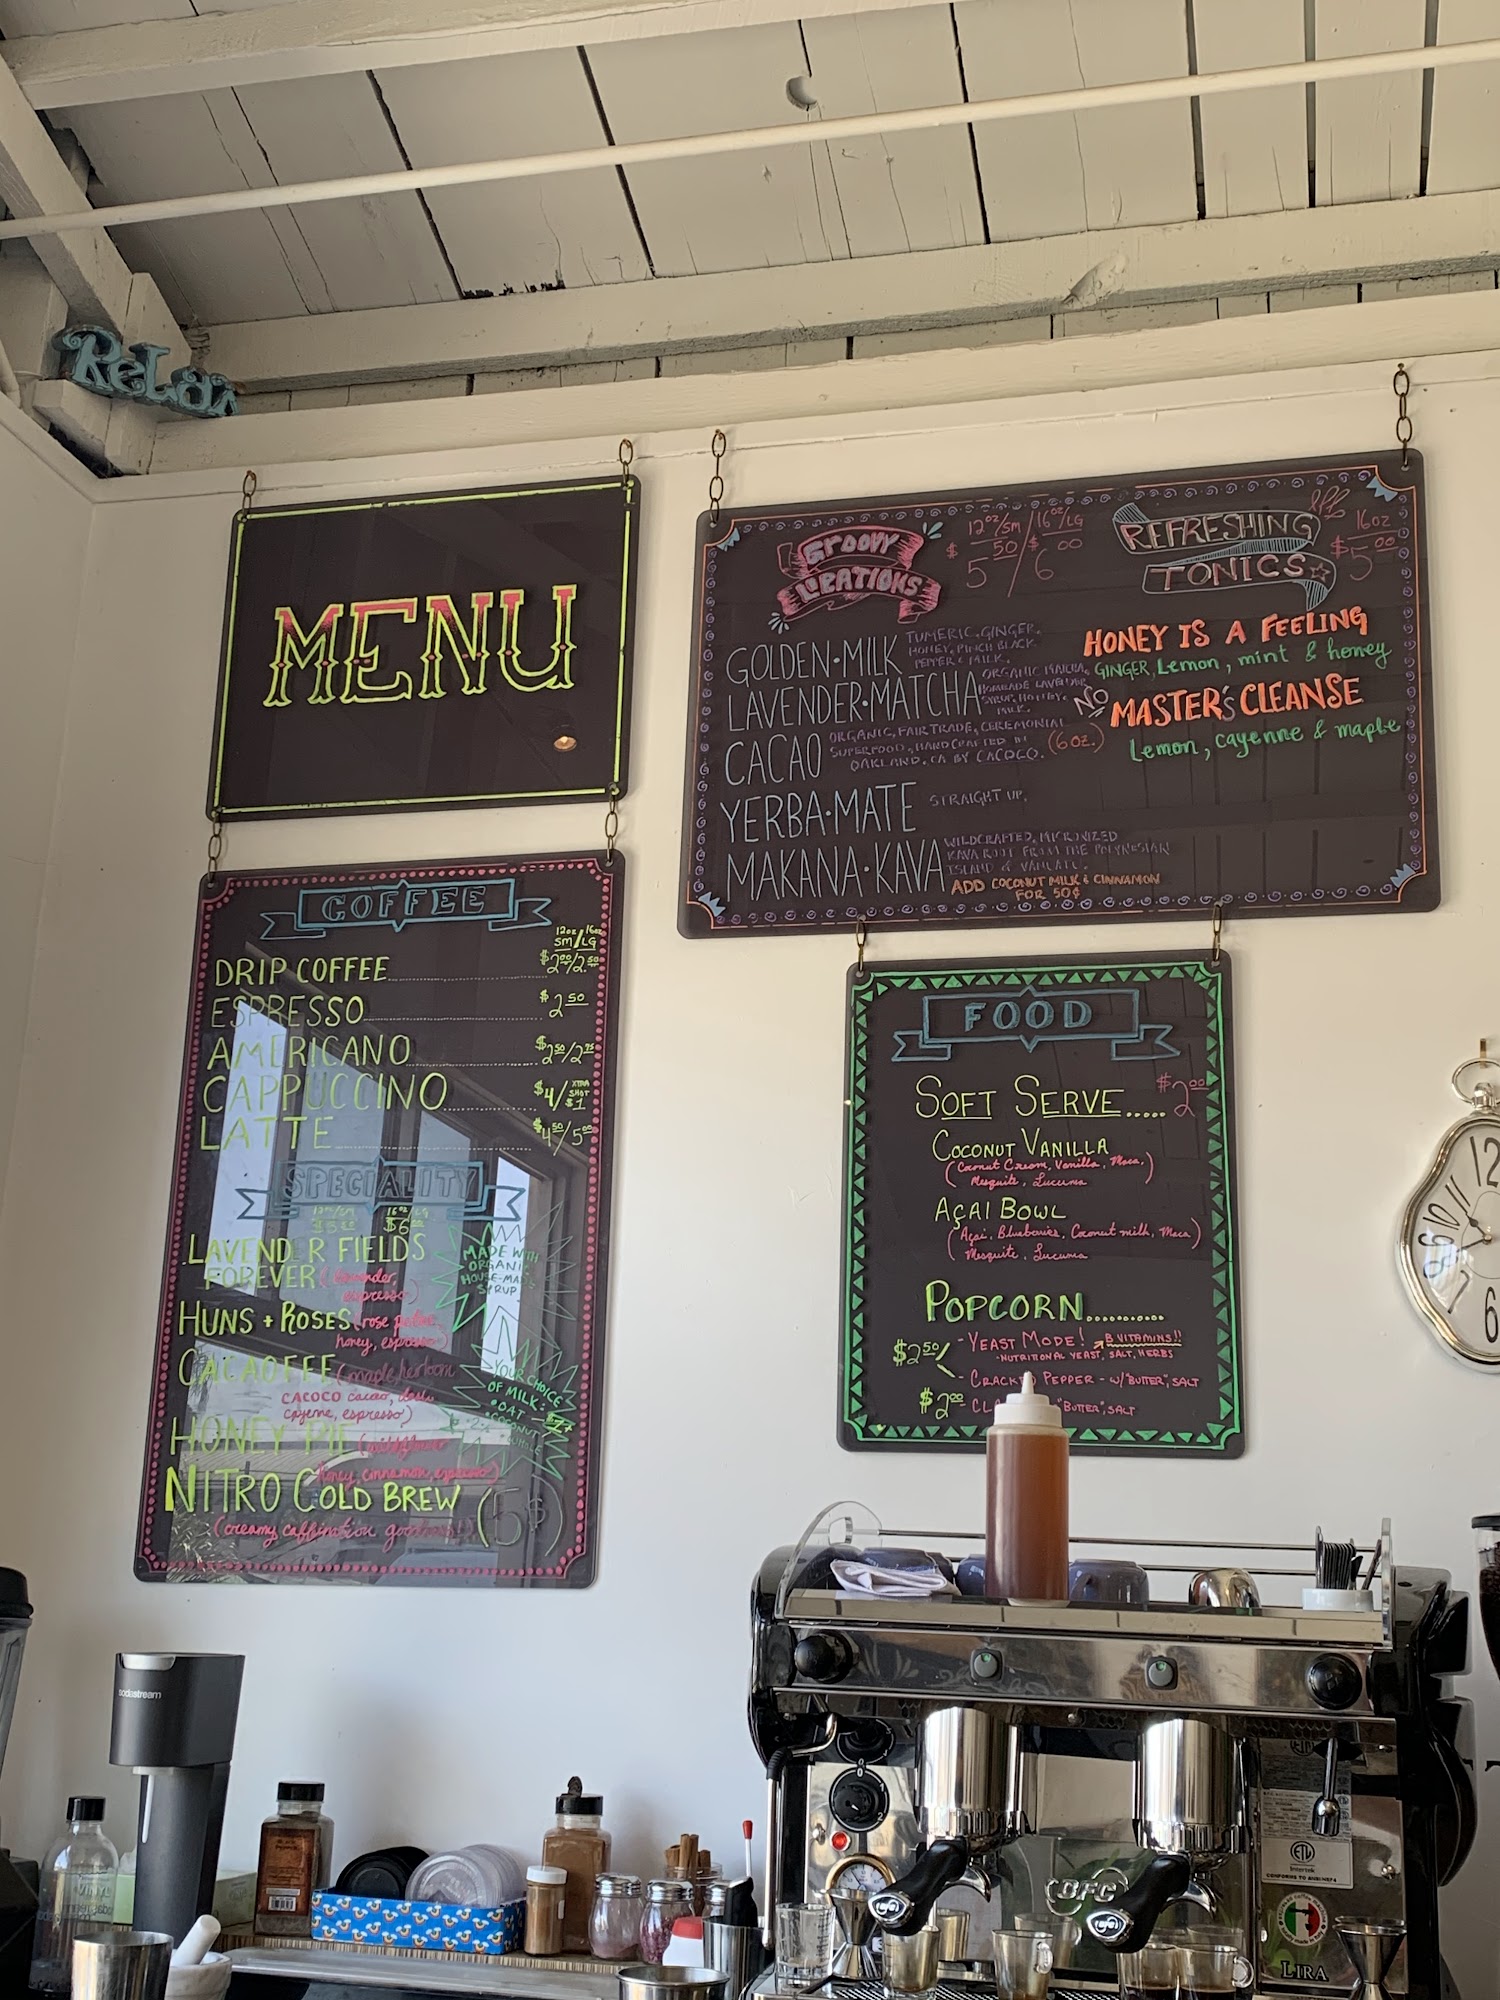 ReLax
MENU
COFFEE
12oz 16oz
SM/LG
DRIP COFFEE $2.00/2.50
ESPRESSO $2.50
AMERICANO $2.50/2.75
CAPPUCCINO $4/ XTRA SHOT $1
LATTE $4.50/5.00
SPECIALITY
12oz/SM 16oz/LG
$6.00
LAVENDER FIELDS
FOREVER (lavender,
espresso)
MADE WITH
ORGANIC
HOUSE-MADE
SYRUP
HUNS + ROSES (rose
honey, espresso)
CACAOFFE
CACOCO cacao,
cayenne, espresso)
YOUR CHOICE
OF MILK:
OAT
COCONUT
WHOLE
HONEY PIE (wildflower
honey, cinnamon, espresso)
NITRO COLD BREW (5$)
(creamy caffination goodness!)
GROOVY
LIBATIONS
12oz/SM 16oz/LG
$5.50/$6.00
GOLDEN•MILK TUMERIC, GINGER,
HONEY, PINCH BLACK
PEPPER & MILK.
LAVENDER•MATCHA ORGANIC MATCHA,
HOMEMADE LAVENDER
SYRUP, HONEY,
MILK.
CACAO ORGANIC, FAIR TRADE, CEREMONIAL
SUPERFOOD, HANDCRAFTED IN (6oz.)
OAKLAND, CA BY CACOCO.
YERBA•MATE STRAIGHT UP.
MAKANA•KAVA WILDCRAFTED, MICRONIZED
KAVA ROOT FROM THE POLYNESIAN
ISLAND of VANUATU.
ADD COCONUT MILK & CINNAMON
FOR 50¢
REFRESHING
TONICS
16oz
$5.00
HONEY IS A FEELING
GINGER, Lemon, mint & honey
NO MASTER'S CLEANSE
Lemon, cayenne & maple
FOOD
SOFT SERVE..... $2.00
COCONUT VANILLA
(Coconut Cream, Vanilla, Maca,
Mesquite, Lucuma)
AÇAI BOWL
(Açai, Blueberries, Coconut milk, Maca
Mesquite, Lucuma)
POPCORN...........
$2.50/ - YEAST MODE! B VITAMINS!!
-NUTRITIONAL YEAST, SALT, HERBS
- CRACKED PEPPER - W/"BUTTER", SALT
$2.00 "BUTTER", SALT
12
11
10
9
8
7
6
sodastream
BFC
ETL
Intertek
LIRA